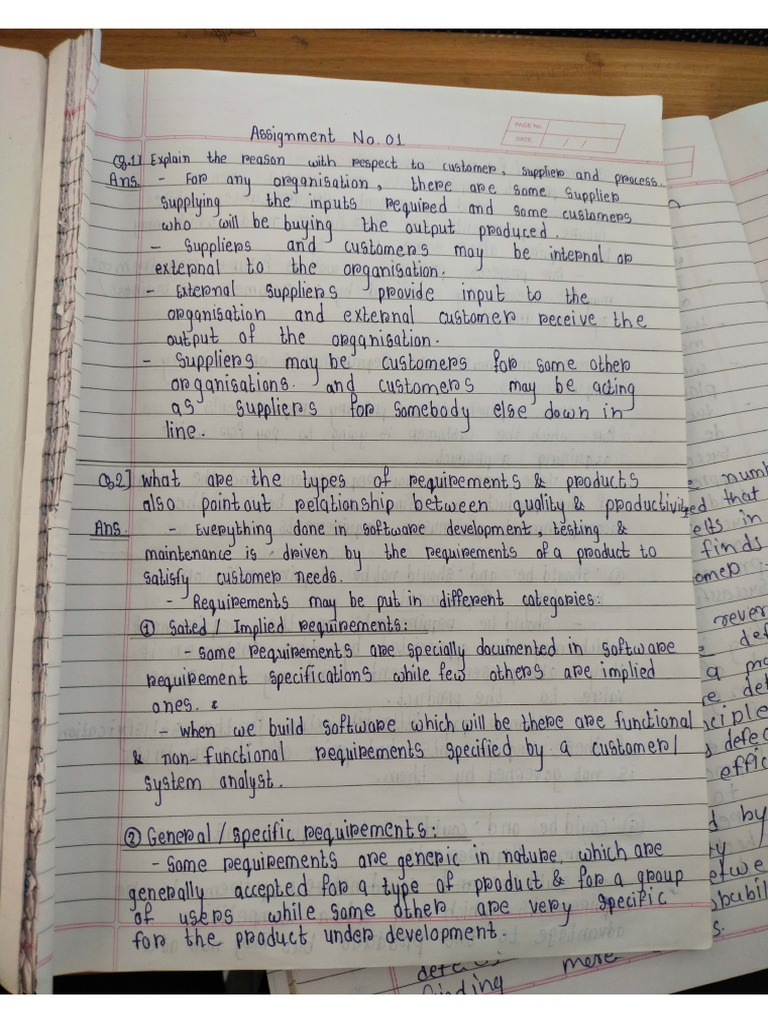 PAGE No.
DATE / /
Assignment No. 01
Q.1] Explain the reason with respect to customer, supplier and process.
Ans. - For any organisation, there are some supplier
supplying the inputs required and some customers
who will be buying the output produced.
- Suppliers and customers may be internal or
external to the organisation.
- External suppliers provide input to the
organisation and external customer receive the
output of the organisation.
- Suppliers may be customers for some other
organisations. and customers may be acting
as suppliers for somebody else down in
line.
Q.2] What are the types of requirements & products
also point out relationship between quality & productivity
Ans. - Everything done in software development, testing &
maintenance is driven by the requirements of a product to
satisfy customer needs.
- Requirements may be put in different categories:
① Sated / Implied requirements:
- some requirements are specially documented in software
requirement specifications while few others are implied
ones. &
- when we build software which will be there are functional
& non-functional requirements specified by a customer/
system analyst.
② General / specific requirements:
- Some requirements are generic in nature, which are
generally accepted for a type of product & for a group
of users while some other are very specific
for the product under development.
numb
ed that
elts in
finds
omer
rever
def
a pro
e def
nciple
defec
effic
d by
ry
etwe
obabil
s.
finding more